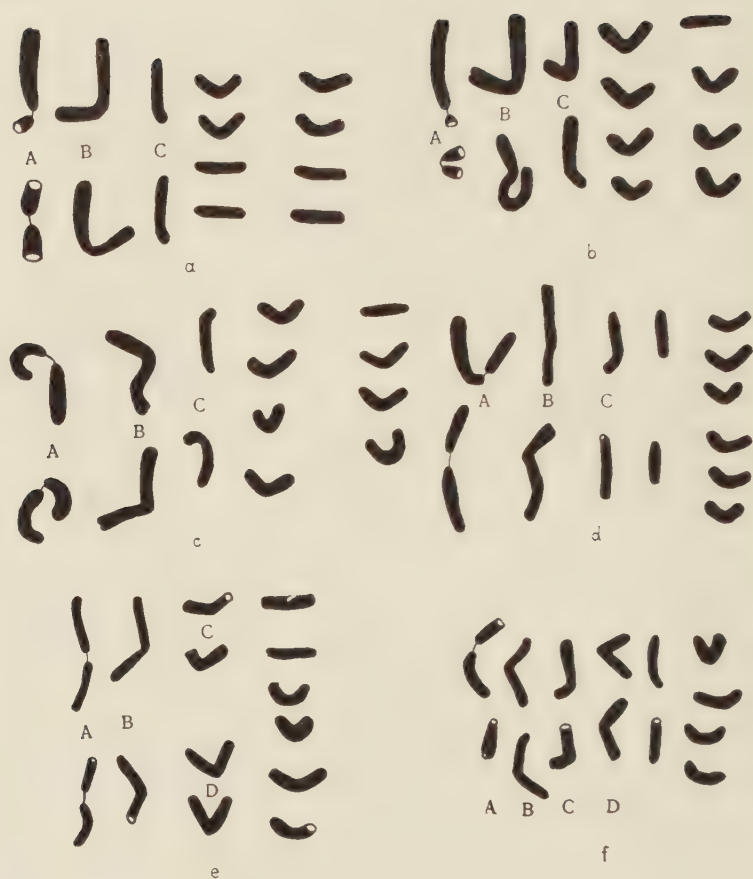 A B C
a
A B C
b
A B C
c
A B C
d
A B C D
e
A B C D
f